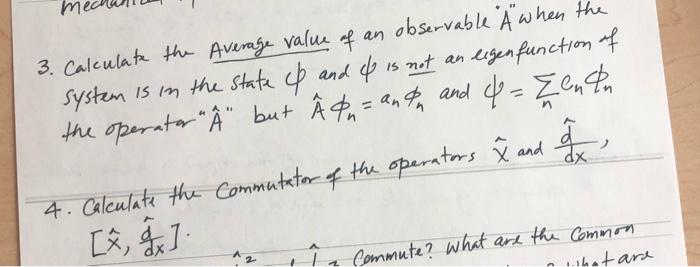 3. Calculate the Average value of an observable "A" when the
system is in the state ψ and ψ is not an eigenfunction of
the operator "Â" but Âϕₙ = aₙϕₙ and ψ = Σₙ Cₙϕₙ
4. Calculate the Commutator of the operators x̂ and d̂/dx,
[x̂, d̂/dx].
Commute? What are the Common
what are